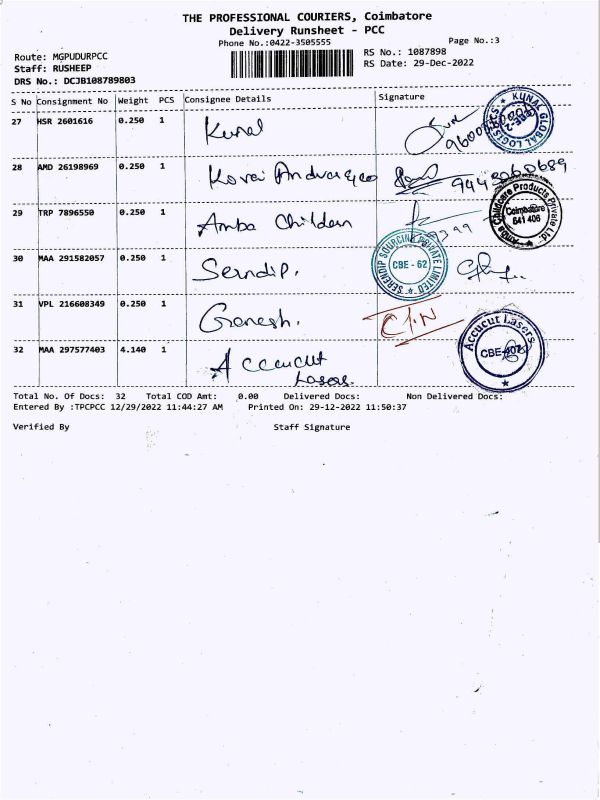 THE PROFESSIONAL COURIERS, Coimbatore
Delivery Runsheet - PCC
Phone No.:0422-3505555 Page No.:3
Route: MGPUDURPCC RS No.: 1087898
Staff: RUSHEEP RS Date: 29-Dec-2022
DRS No.: DCJB108789803
S No Consignment No Weight PCS Consignee Details Signature
27 HSR 2601616 0.250 1 Kunal
KUNAL GLOBAL LOGISTICS
28 AMD 26198969 0.250 1 Kovai
29 TRP 7896550 0.250 1 Amba Childern
Amba Childcare Products Private Ltd. Coimbatore 641 406
30 MAA 291582057 0.250 1 Serndip.
SERENDIP SOURCING PRIVATE LIMITED CBE - 62
31 VPL 216608349 0.250 1 Ganesh.
32 MAA 297577403 4.140 1 Accucut
Lasers.
Accucut Lasers CBE-407
Total No. Of Docs: 32 Total COD Amt: 0.00 Delivered Docs: Non Delivered Docs:
Entered By :TPCPCC 12/29/2022 11:44:27 AM Printed On: 29-12-2022 11:50:37
Verified By Staff Signature